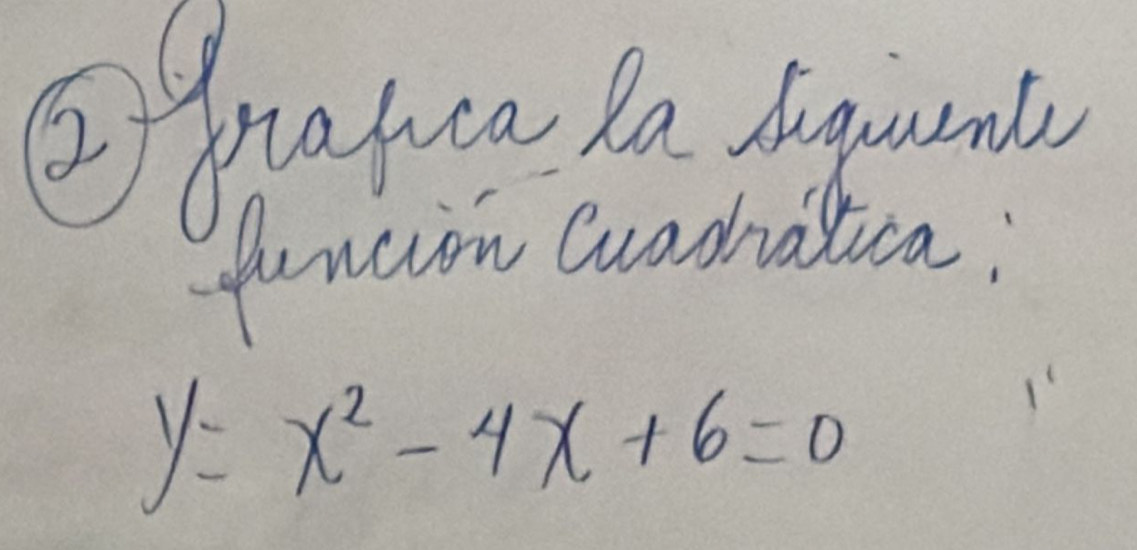 ② Grafica la siguiente
función cuadrática:
y = x² - 4x + 6 = 0